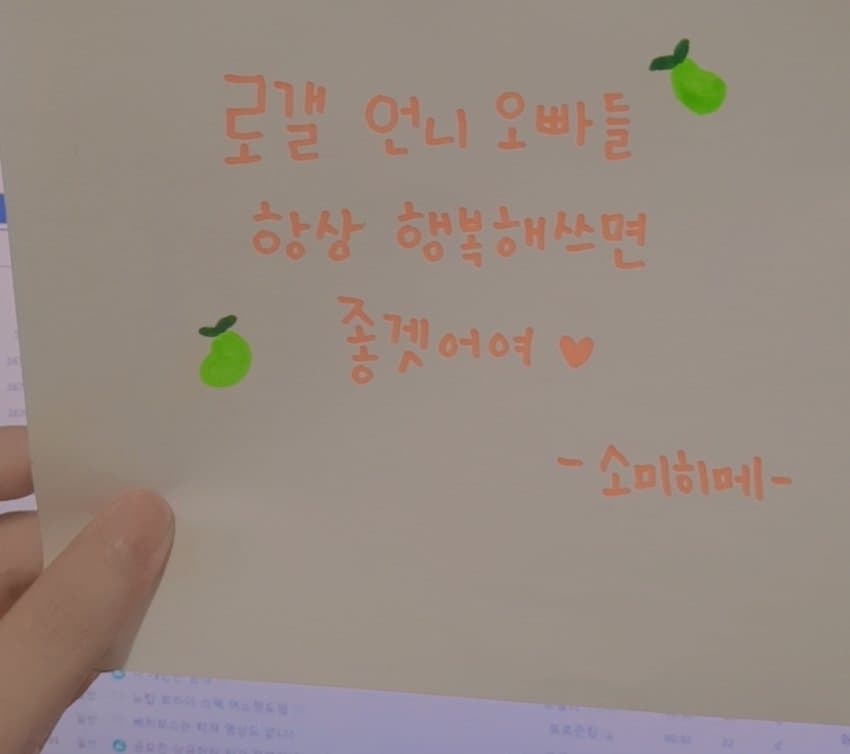 로갤 언니 오빠들
항상 행복해쓰면
좋겟어여 ♥
- 소미히메 -